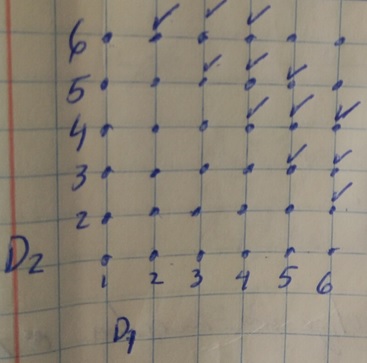 6
5
4
3
2
D2
1 2 3 4 5 6
D1